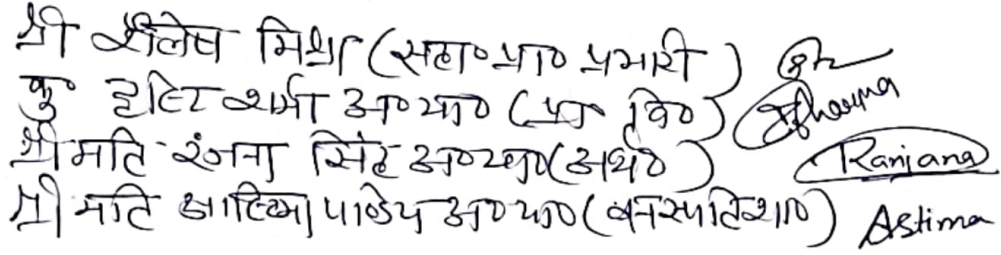 श्री शैलेष मिश्रा (सहा० प्रा० प्रभारी)
कु० शर्मा अ० व्या० (प्रा० वि०) Sharma
श्रीमति रंजना सिंह अ० व्या० (अर्थ०) Ranjana
श्रीमति आस्तिमा पाण्डेय अ० व्या० (वनस्पतिशा०) Astima